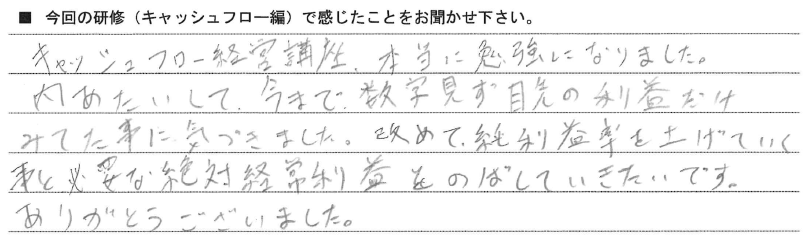 ■ 今回の研修（キャッシュフロー編）で感じたことをお聞かせ下さい。
キャッシュフロー経営講座、本当に勉強になりました。
内めたいして、今まで、数字見ず目先の利益だけ
みてた事に気づきました。改めて、純利益率を上げていく
事と必要な絶対経常利益をのばしていきたいです。
ありがとうございました。